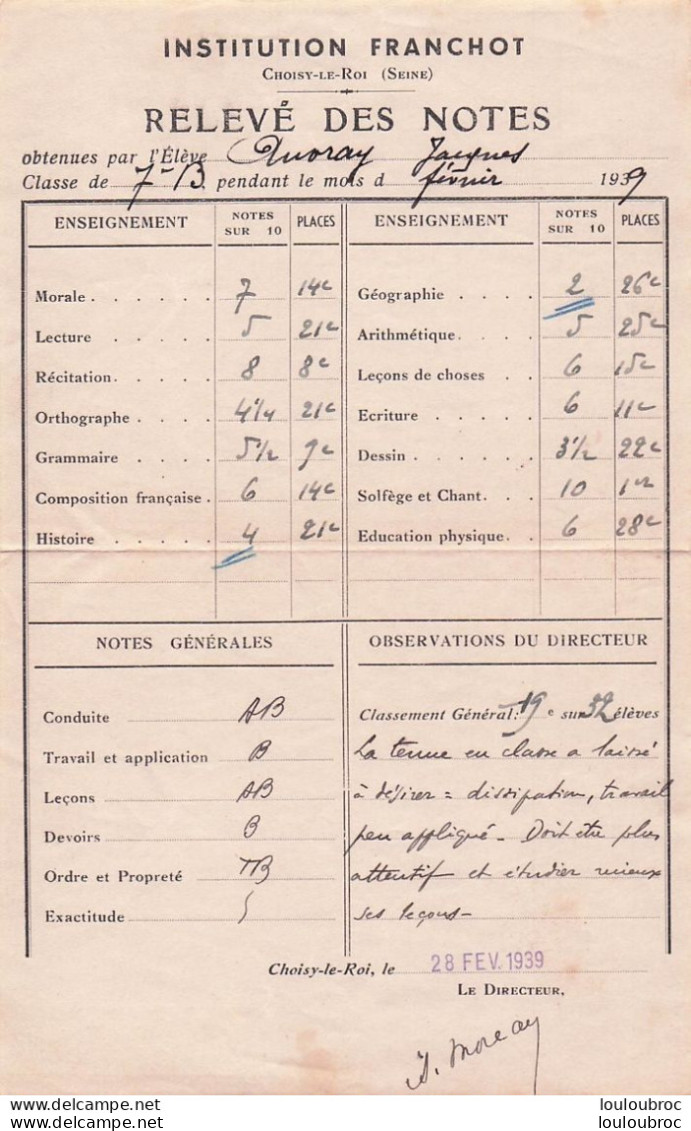 INSTITUTION FRANCHOT
CHOISY-LE-ROI (SEINE)
RELEVÉ DES NOTES
obtenues par l'Élève Auvray Jacques
Classe de 7e B pendant le mois d février 1939
ENSEIGNEMENT NOTES SUR 10 PLACES ENSEIGNEMENT NOTES SUR 10 PLACES
Morale . . . . . . 7 14e Géographie . . . . 2 26e
Lecture . . . . . 5 21e Arithmétique. . . . 5 25e
Récitation. . . . . 8 8e Leçons de choses . . 6 15e
Orthographe . . . . 4 1/4 21e Ecriture . . . . . 6 11e
Grammaire . . . . 5 1/2 9e Dessin . . . . . . 3 1/2 22e
Composition française . 6 14e Solfège et Chant. . . 10 1er
Histoire . . . . . 4 21e Education physique. . 6 28e
NOTES GÉNÉRALES
Conduite AB
Travail et application B
Leçons AB
Devoirs B
Ordre et Propreté TB
Exactitude
OBSERVATIONS DU DIRECTEUR
Classement Général: 19e sur 32 élèves
La tenue en classe a laissé
à désirer = dissipation, travail
peu appliqué - Doit être plus
attentif et étudier mieux
ses leçons -
Choisy-le-Roi, le 28 FEV. 1939
LE DIRECTEUR,
Moreau
louloubroc
louloubroc